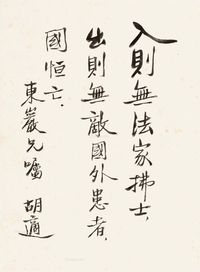 入則無法家拂士，
出則無敵國外患者，
國恒亡．
東巖兄囑　胡適